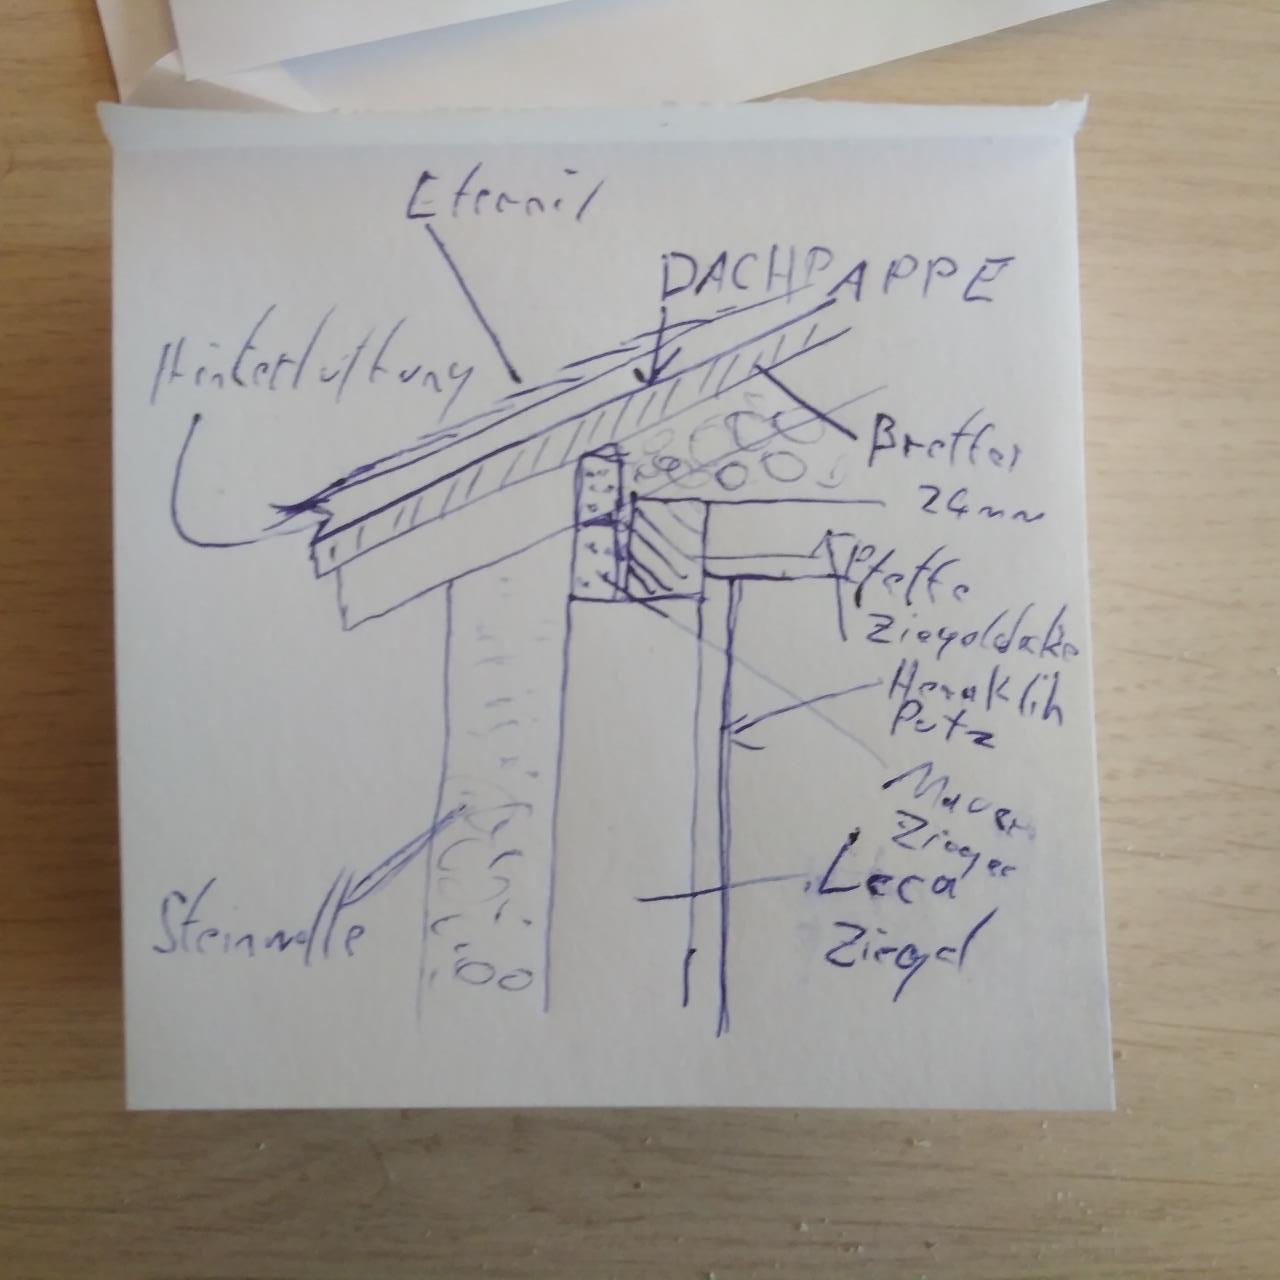 Eternit
DACHPAPPE
Hinterlüftung
Bretter
24mm
Pfette
Ziegeldecke
Heraklith
Putz
Mauer
Ziegel
Leca
Ziegel
Steinwolle